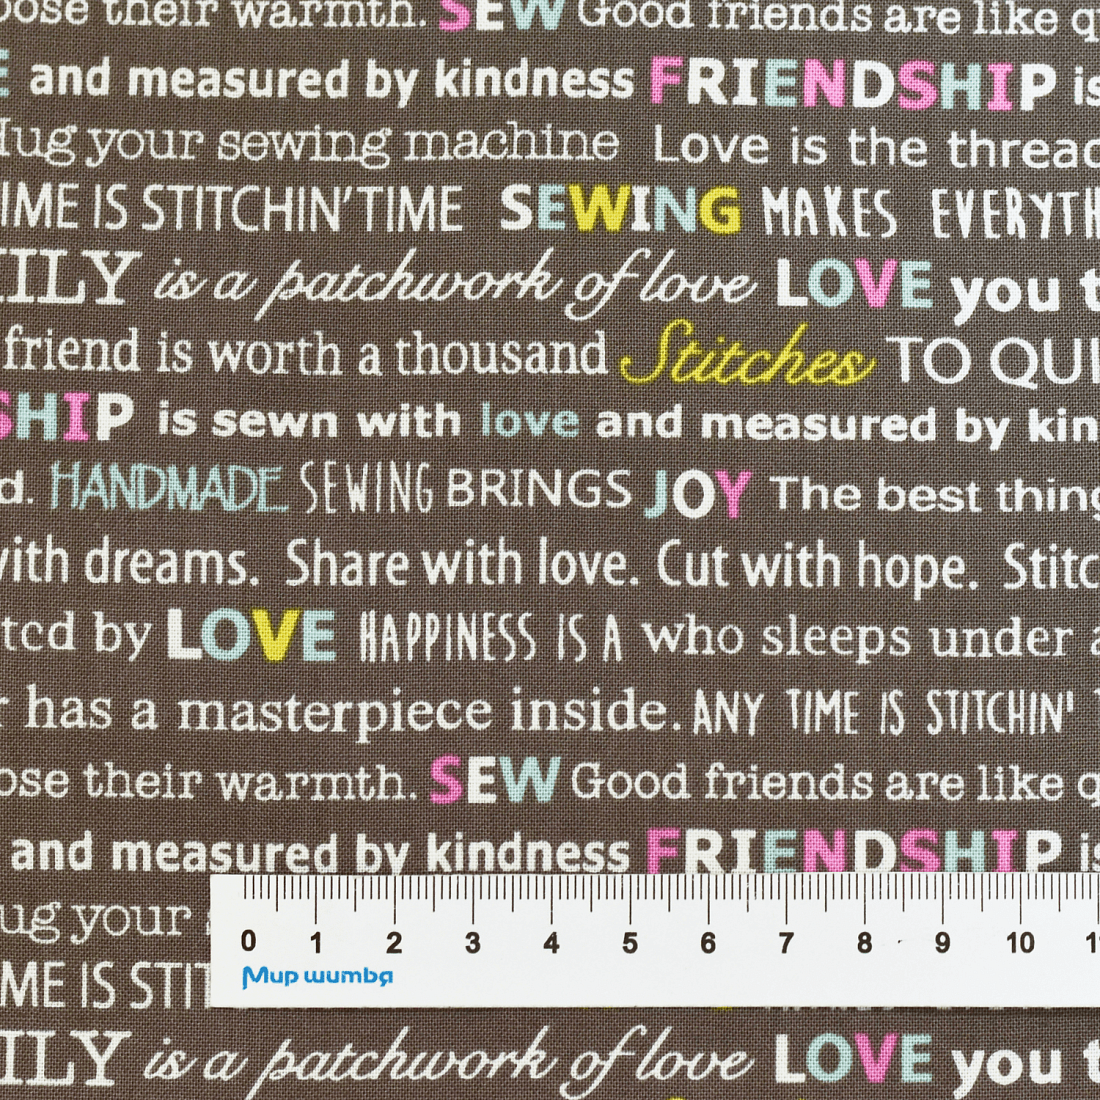 ose their warmth. SEW Good friends are like q
E and measured by kindness FRIENDSHIP is
Hug your sewing machine Love is the thread
TIME IS STITCHIN'TIME SEWING MAKES EVERYTH
ILY is a patchwork of love LOVE you t
friend is worth a thousand Stitches TO QUI
SHIP is sewn with love and measured by kin
d. HANDMADE SEWING BRINGS JOY The best thing
with dreams. Share with love. Cut with hope. Stitc
tcd by LOVE HAPPINESS IS A who sleeps under a
r has a masterpiece inside. ANY TIME IS STITCHIN' T
ose their warmth. SEW Good friends are like q
and measured by kindness FRIENDSHIP is
ug your
0 1 2 3 4 5 6 7 8 9 10 11
IME IS STIT
Мир шитья
ILY is a patchwork of love LOVE you t